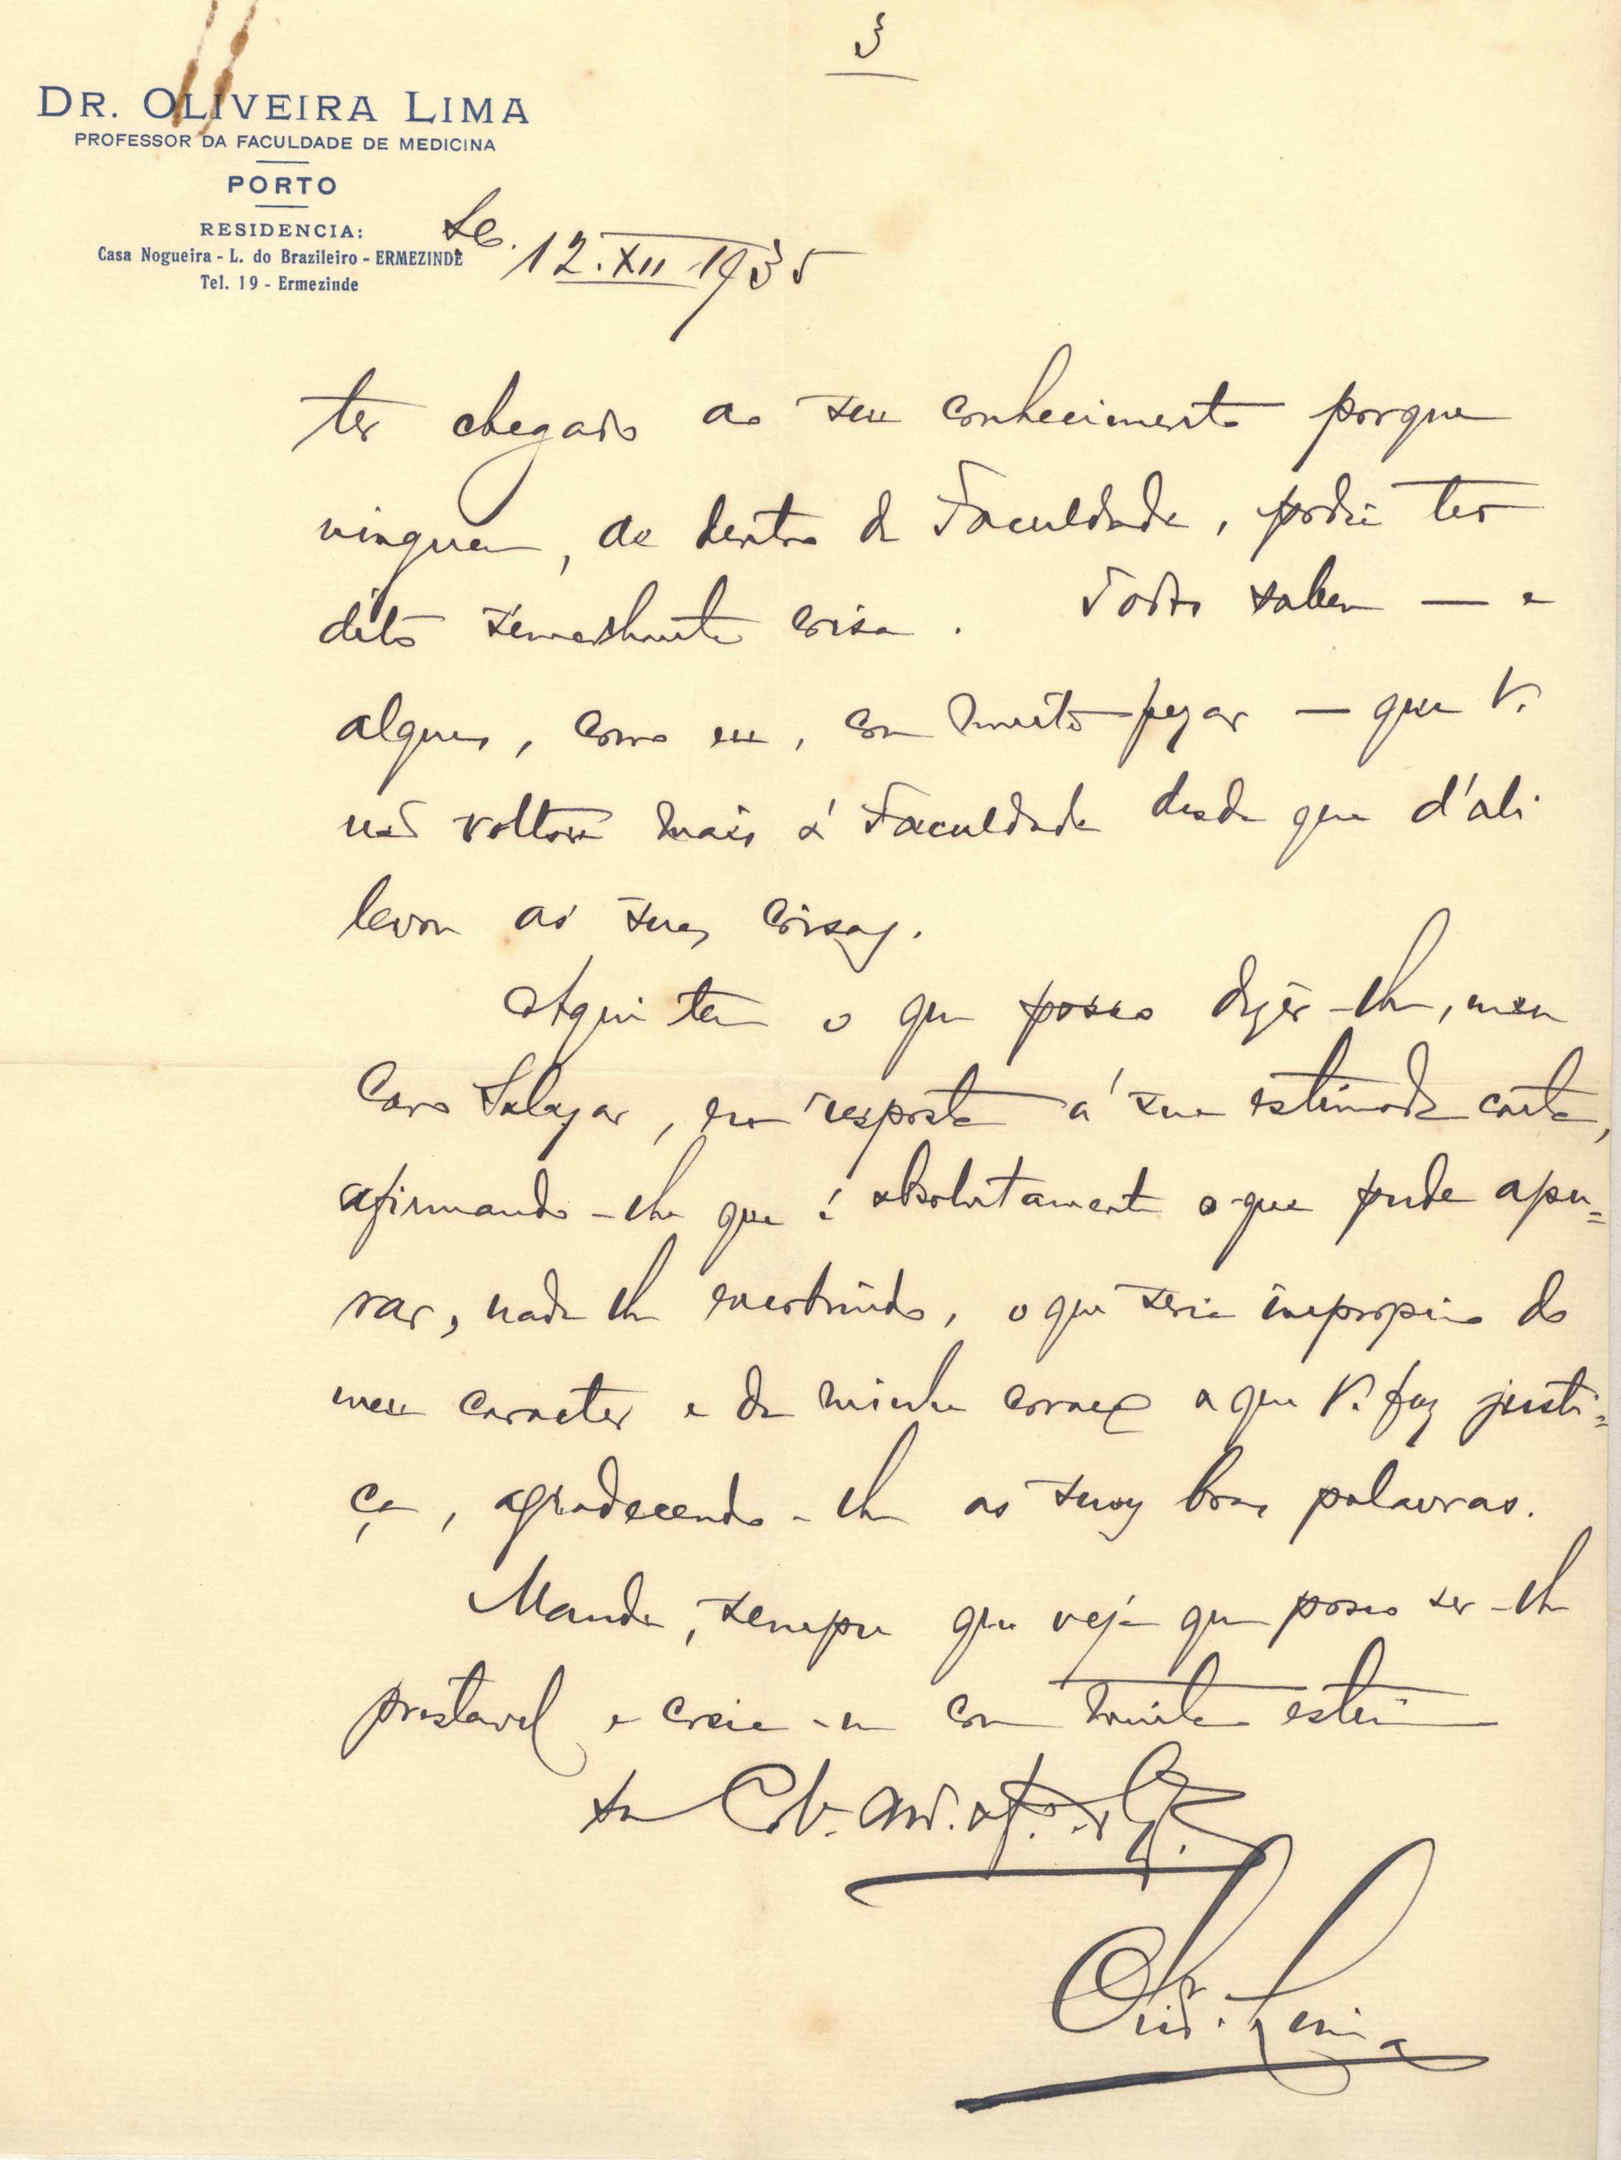 3
DR. OLIVEIRA LIMA
PROFESSOR DA FACULDADE DE MEDICINA
PORTO
RESIDENCIA:
Casa Nogueira - L. do Brazileiro - ERMEZINDE
Tel. 19 - Ermezinde
12.XII 1935
ter chegado ao seu conhecimento porque
ninguem, de dentro da Faculdade, podia ter
dito semelhante coisa. Todos sabem — e
alguns, como eu, com muito pezar — que V.
não voltou mais á Faculdade desde que d'ali
levou as suas coisas.
Aqui tem o que posso dizer-lhe, meu
Caro Salazar, em resposta á sua estimada carta,
afirmando-lhe que é absolutamente o que pude apu=
rar, nada lhe encobrindo, o que seria improprio do
meu caracter e da minha a que V. faz justi=
ça, agradecendo-lhe as suas boas palavras.
Mande, sempre que veja que posso ser-lhe
prestavel e creia-me com muita estima
Oliv. Lima